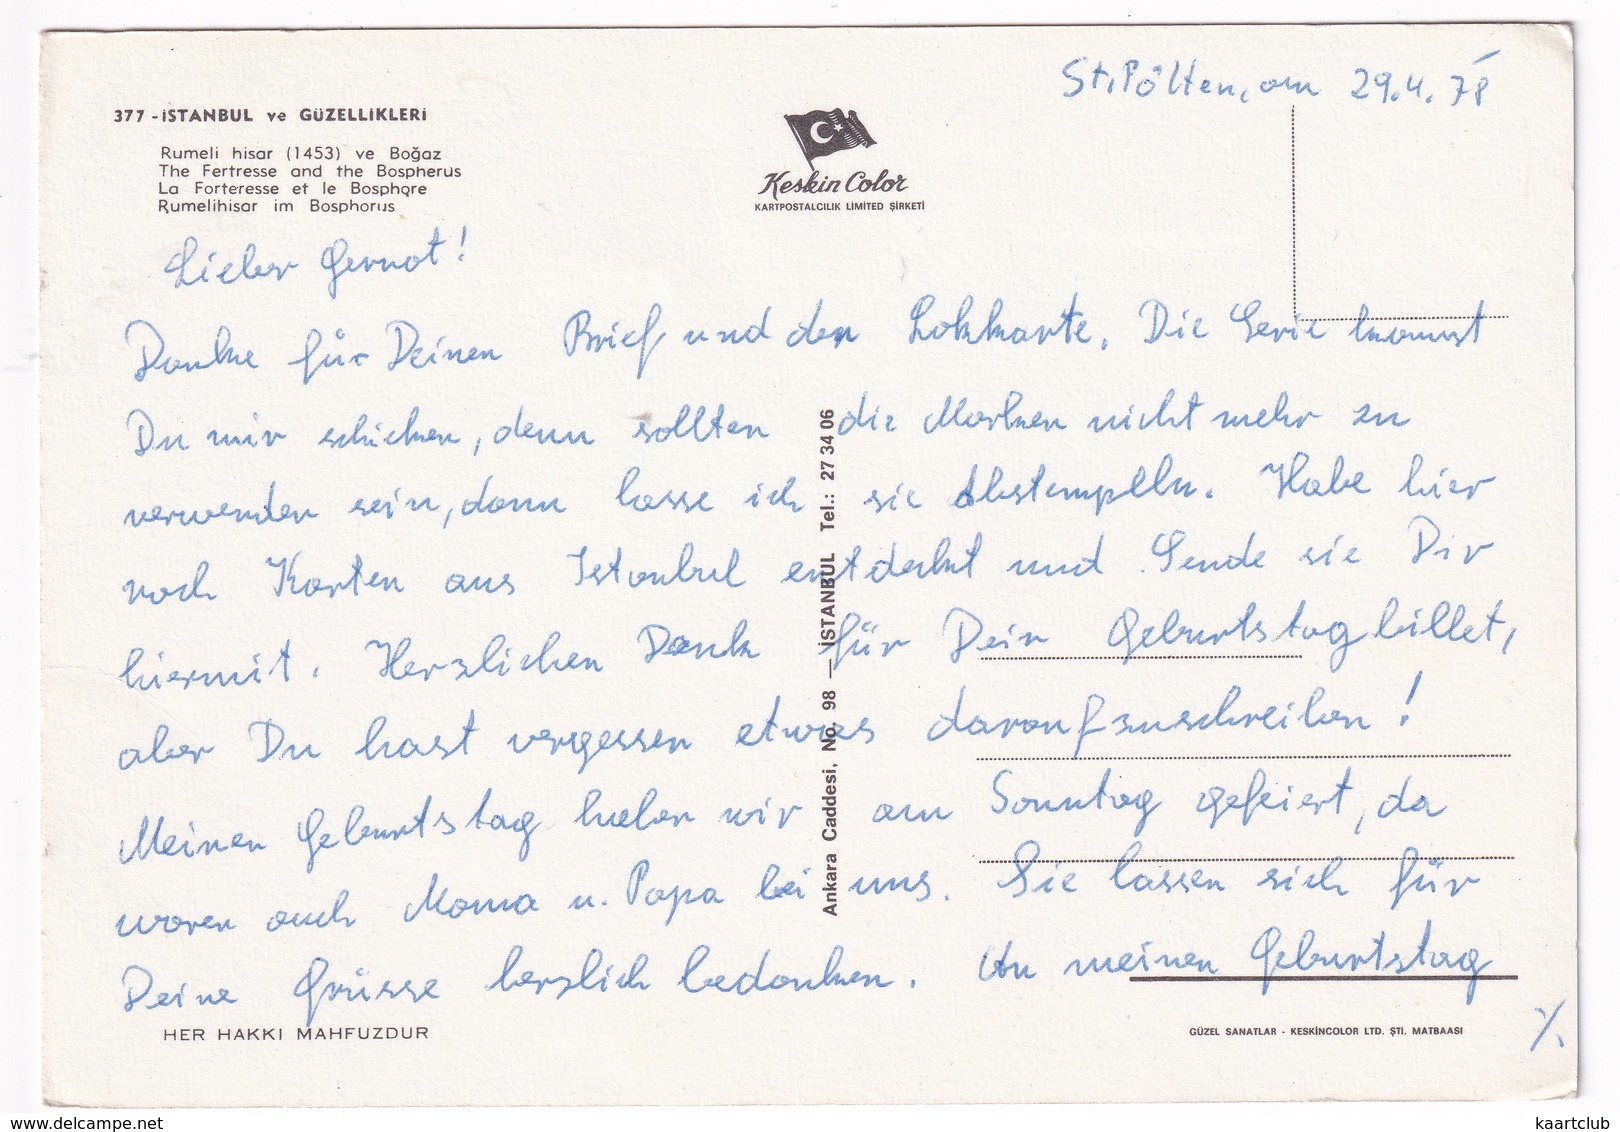 St. Pölten, am 29.4.78
377 - İSTANBUL ve GÜZELLİKLERİ
Rumeli hisar (1453) ve Boğaz
The Fertresse and the Bospherus
La Forteresse et le Bosphore
Rumelihisar im Bosphorus
Keskin Color
KARTPOSTALCILIK LIMITED ŞİRKETİ
Lieber Gernot!
Danke für Deinen Brief und den Lokkarte. Die Serie kannst
Du mir schicken, denn sollten die Marken nicht mehr zu
verwenden sein, dann lasse ich sie Abstempeln. Habe hier
noch Karten aus Istanbul entdeckt und Sende sie Dir
hiermit. Herzlichen Dank für Dein Geburtstagbillet,
aber Du hast vergessen etwas daraufzuschreiben!
Meinen Geburtstag haben wir am Sonntag gefeiert, da
waren auch Mama u. Papa bei uns. Sie lassen sich für
Deine Grüsse herzlich bedanken. An meinen Geburtstag
Ankara Caddesi, No. 98 — İSTANBUL Tel.: 27 34 06
HER HAKKI MAHFUZDUR
GÜZEL SANATLAR - KESKİNCOLOR LTD. ŞTİ. MATBAASI
./.
kaartclub